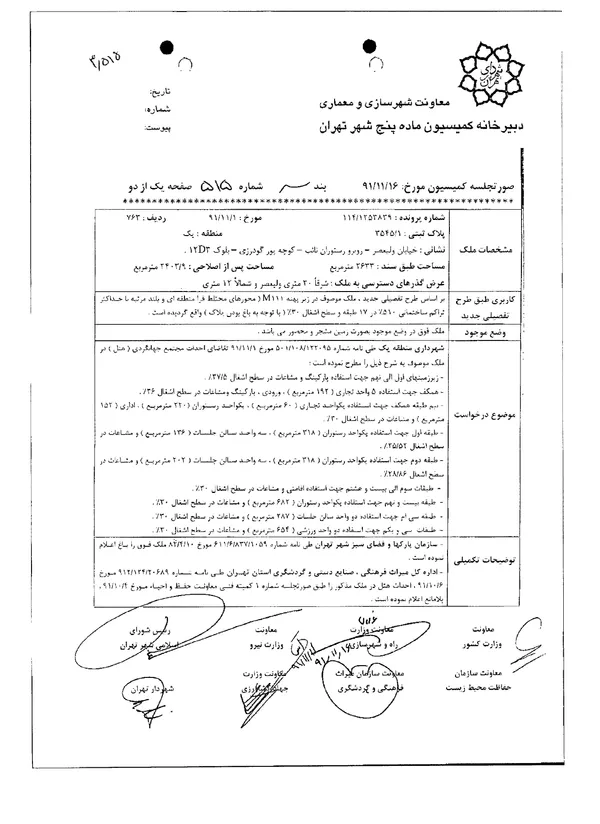 ۳/۵۱۵
تاریخ:
شماره:
پیوست:
معاونت شهرسازی و معماری
دبیرخانه کمیسیون ماده پنج شهر تهران
صورتجلسه کمیسیون مورخ: ۹۱/۱۱/۱۶ بند شماره ۵۱۵ صفحه یک از دو
مشخصات ملک
شماره پرونده : ۱۱۴/۱۲۵۳۸۳۹ مورخ : ۹۱/۱۱/۱ ردیف : ۷۶۳
پلاک ثبتی : ۳۵۴۵/۱ منطقه : یک
نشانی : خیابان ولیعصر – روبرو رستوران نائب – کوچه پور گودرزی – بلوک ۱۲D۳ .
مساحت طبق سند : ۲۶۳۳ مترمربع مساحت پس از اصلاحی : ۲۴۰۳/۹ مترمربع
عرض گذرهای دسترسی به ملک : شرقاً ۳۰ متری ولیعصر و شمالاً ۱۲ متری
کاربری طبق طرح تفصیلی جدید
بر اساس طرح تفصیلی جدید ، ملک موصوف در زیر پهنه M۱۱۱ ( محورهای مختلط فرا منطقه ای و بلند مرتبه با حداکثر
تراکم ساختمانی ۵۱۰٪ در ۱۷ طبقه و سطح اشغال ۳۰٪ ( با توجه به باغ بودن پلاک ) واقع گردیده است .
وضع موجود
ملک فوق در وضع موجود بصورت زمین مشجر و محصور می باشد .
موضوع درخواست
شهرداری منطقه یک طی نامه شماره ۵۰۱/۱۰۸/۱۲۲۰۹۵ مورخ ۹۱/۱۱/۱ تقاضای احداث مجتمع جهانگردی ( هتل ) در
ملک موصوف به شرح ذیل را مطرح نموده است :
- زیرزمینهای اول الی نهم جهت استفاده پارکینگ و مشاعات در سطح اشغال ۳۷/۵٪ .
- همکف جهت استفاده ۵ واحد تجاری ( ۱۹۲ مترمربع ) ، ورودی ، پارکینگ ومشاعات در سطح اشغال ۳۶٪ .
- نیم طبقه همکف جهت استفاده یکواحد تجاری ( ۶۰ مترمربع ) ، یکواحد رستوران (۲۲۰ مترمربع ) ، اداری ( ۱۵۲
مترمربع ) و مشاعات در سطح اشغال ۳۰٪ .
- طبقه اول جهت استفاده یکواحد رستوران ( ۳۱۸ مترمربع ) ، سه واحد سالن جلسات ( ۱۳۶ مترمربع ) و مشاعات در سطح
اشغال ۲۵/۵۲٪ .
- طبقه دوم جهت استفاده یکواحد رستوران ( ۳۱۸ مترمربع ) ، سه واحد سالن جلسات ( ۲۰۲ مترمربع ) و مشاعات در
سطح اشغال ۲۸/۸۶٪ .
- طبقات سوم الی بیست و هشتم جهت استفاده اقامتی و مشاعات در سطح اشغال ۳۰٪ .
- طبقه بیست و نهم جهت استفاده یکواحد رستوران ( ۶۸۲ مترمربع ) و مشاعات در سطح اشغال ۳۰٪ .
- طبقه سی ام جهت استفاده دو واحد سالن جلسات ( ۲۸۷ مترمربع ) و مشاعات در سطح اشغال ۳۰٪ .
- طبقات سی و یکم جهت استفاده دو واحد ورزشی ( ۶۵۴ مترمربع ) و مشاعات در سطح اشغال ۳۰٪ .
توضیحات تکمیلی
- سازمان پارکها و فضای سبز شهر تهران طی نامه شماره ۶۱۱/۶/۸۳۷/۱۰۵۹ مورخ ۸۲/۲/۱۰ ملک فوق را باغ اعلام
نموده است .
- اداره کل میراث فرهنگی ، صنایع دستی و گردشگری استان تهران طی نامه شماره ۹۱۲/۱۲۴/۲۰۶۸۹ مورخ
۹۱/۱۰/۶ ، احداث هتل در ملک مذکور را طبق صورتجلسه شماره ۱ کمیته فنی معاونت حفظ و احیاء مورخ ۹۱/۱۰/۲ ،
بلامانع اعلام نموده است .
معاونت وزارت کشور
معاونت وزارت راه و شهرسازی
معاونت وزارت نیرو
رئیس شورای اسلامی شهر تهران
۹۱,۱۱,۱۶
معاونت سازمان حفاظت محیط زیست
معاونت سازمان میراث فرهنگی و گردشگری
معاونت وزارت جهاد کشاورزی
شهردار تهران